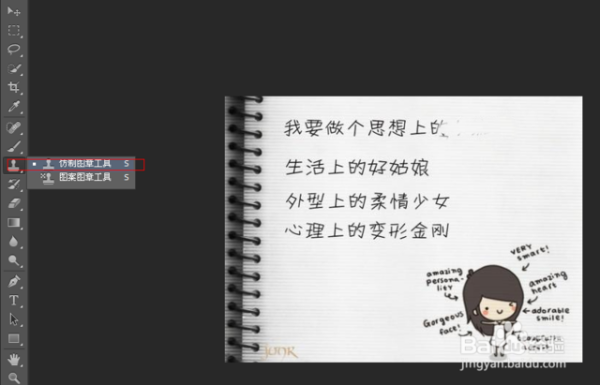 仿制图章工具 S
图案图章工具 S
T
我要做个思想上的
生活上的好姑娘
外型上的柔情少女
心理上的变形金刚
VERY smart!
amazing personality
amazing heart
adorable smile!
Gorgeous face!
junk
Baidu 经验
jingyan.baidu.com